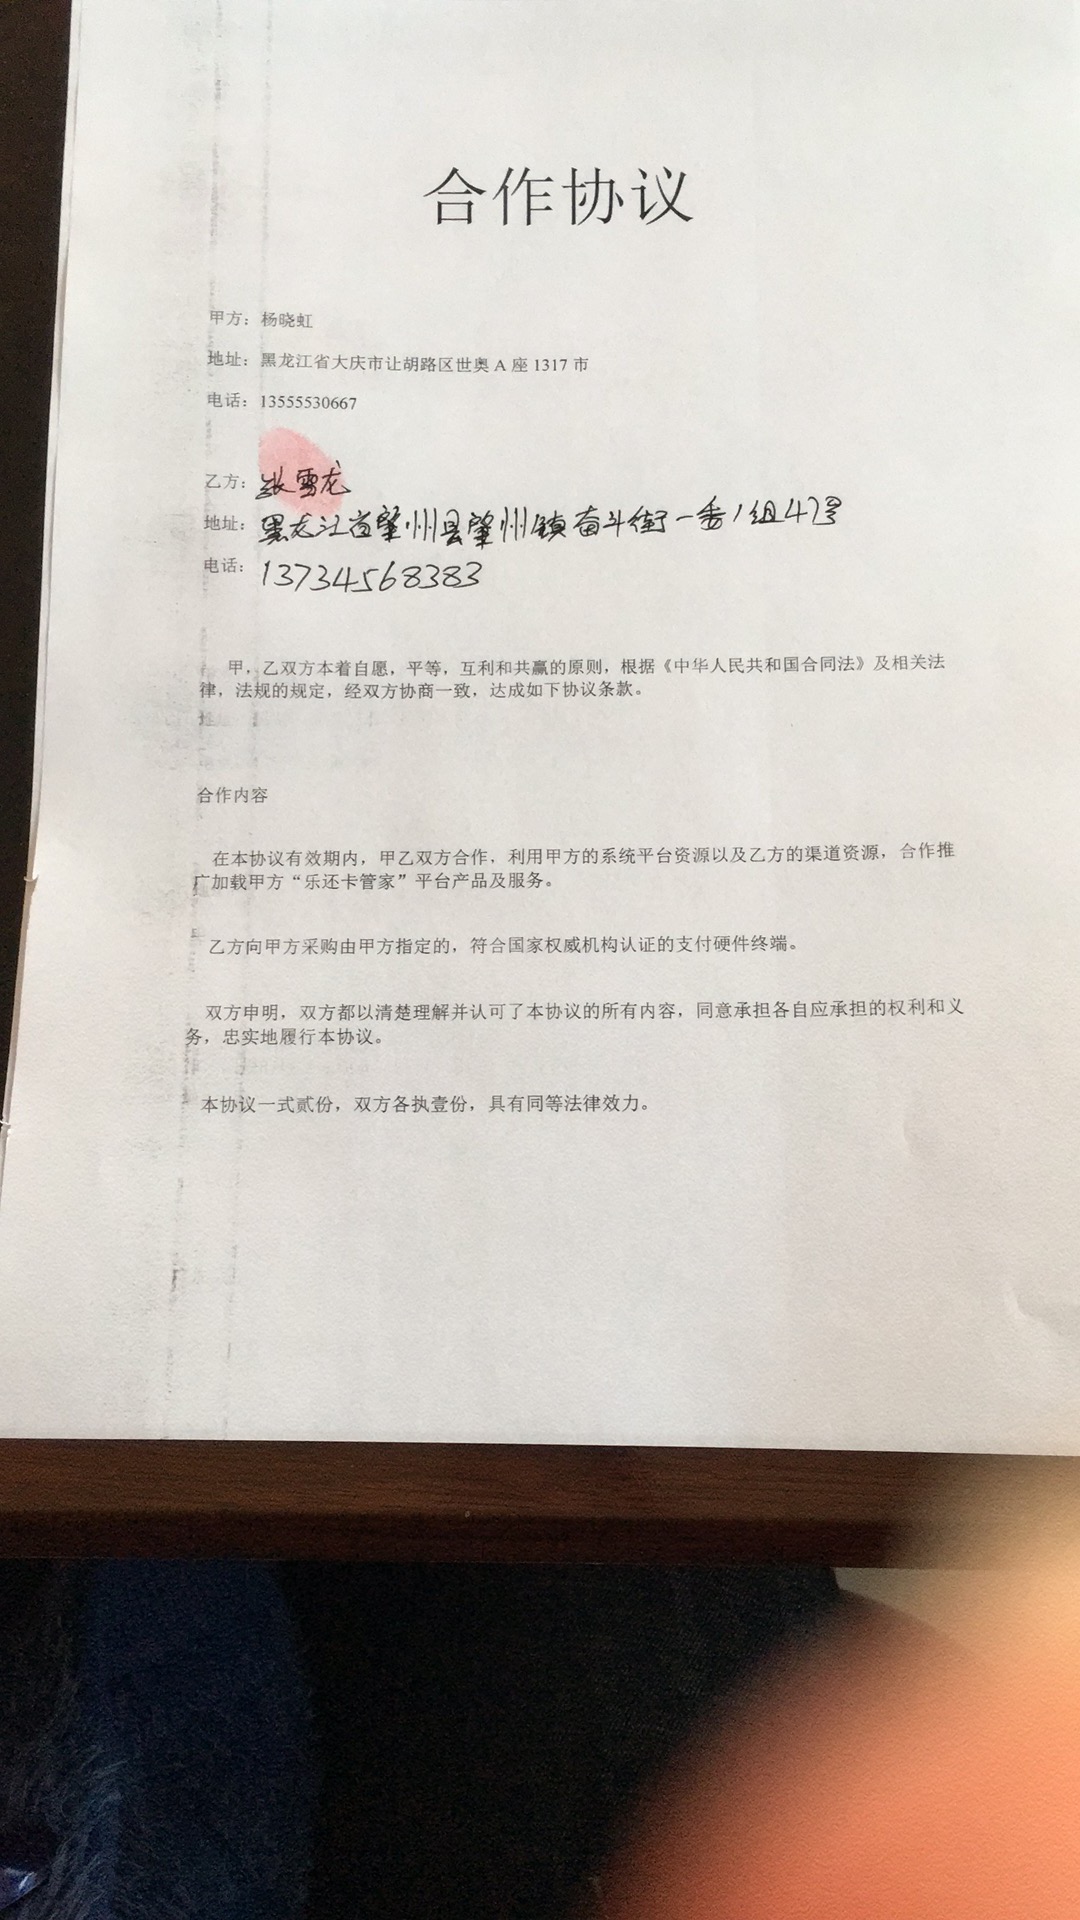 合作协议
甲方：杨晓虹
地址：黑龙江省大庆市让胡路区世奥 A 座 1317 市
电话：13555530667
乙方：张雪龙
地址：黑龙江省肇州县肇州镇奋斗街一委1组47号
电话：13734568383
甲，乙双方本着自愿，平等，互利和共赢的原则，根据《中华人民共和国合同法》及相关法
律，法规的规定，经双方协商一致，达成如下协议条款。
合作内容
在本协议有效期内，甲乙双方合作，利用甲方的系统平台资源以及乙方的渠道资源，合作推
广加载甲方“乐还卡管家”平台产品及服务。
乙方向甲方采购由甲方指定的，符合国家权威机构认证的支付硬件终端。
双方申明，双方都以清楚理解并认可了本协议的所有内容，同意承担各自应承担的权利和义
务，忠实地履行本协议。
本协议一式贰份，双方各执壹份，具有同等法律效力。